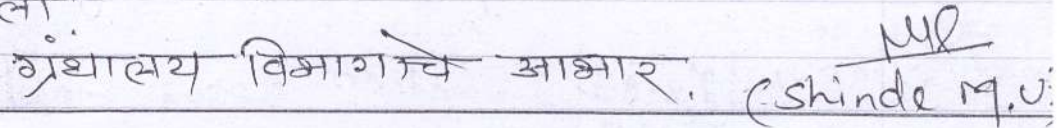 ग्रंथालय विभागाचे आभार. (Shinde M.U.